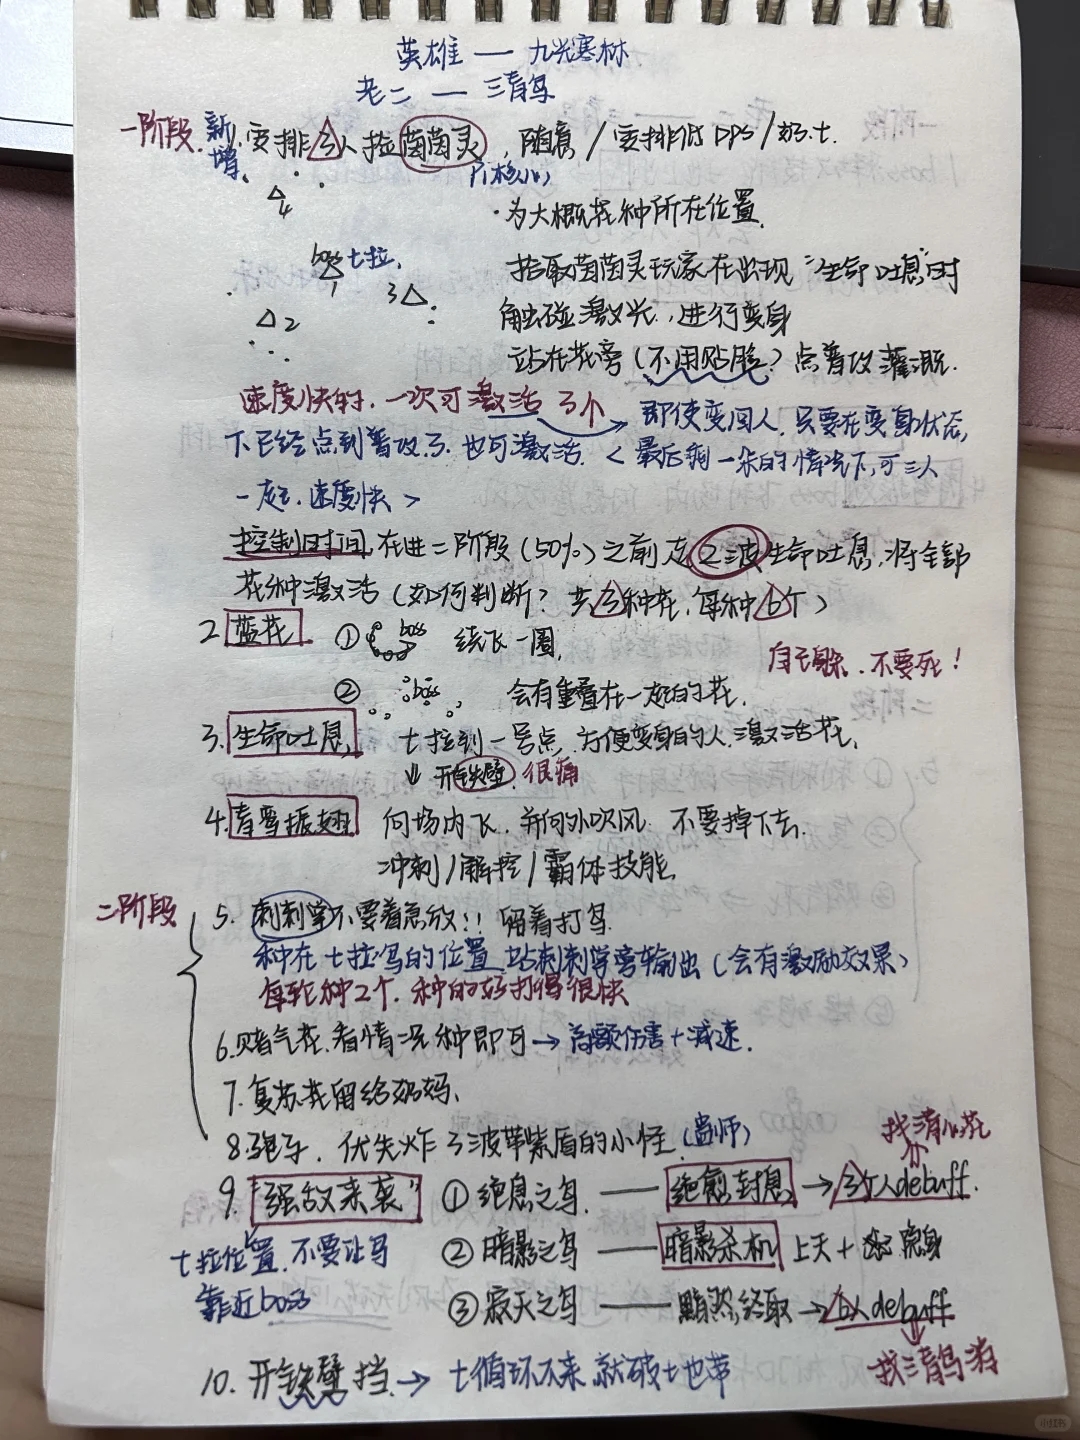 英雄 — 九光寒林
老二 — 三青鸟
一阶段. 新增 1. 要排3人捡茵茵灵, 随意 / 安排低DPS / 奶.t.
产核心
4
·为大概花种所在位置.
boss t拉.
1
3
2
拾取茵茵灵玩家在出现"生命吐息"时
触碰激光, 进行变身
站在花旁(不用贴脸?点普攻灌溉.
速度快的. 一次可激活3个 → 即使变回人. 只要在变身状态,
下已经点到普攻了. 也可激活. < 最后剩一朵的情况下,可三人
一起. 速度快 >
控制时间, 在进二阶段(50%)之前走2波生命吐息,将全部
花种激活(如何判断? 共3种花, 每种6个)
2 蓝花 ① boss 绕飞一圈,
自己躲. 不要死!
② boss 会有重叠在一起的花.
3. 生命吐息, t拉到一号点, 方便变身的人.激活花,
↓ 开铁壁, 很痛
4. 青鸾振翅 向场内飞. 并向外吹风. 不要掉下去.
冲刺 / 解控 / 霸体技能,
二阶段 5. 刺刺掌不要着急放!! 留着打鸟.
种在t拉鸟的位置 站刺刺掌旁输出(会有激励效果)
每轮种2个. 种的好打得很快
6.赌气花.看情况种即可→高额伤害+减速.
7.复苏花留给奶妈,
8. 优先炸3波带紫盾的小怪.
找清心花
9. "强敌来袭" ① 绝息之鸟. — 绝愈封息, → 3个人debuff.
t拉位置. 不要让鸟 ② 暗影之鸟 — 暗影杀机 上天 + 隐身
靠近boss ③ 寂灭之鸟 — 黯然终取 → 6人debuff
找三青鸟消
10. 开铁壁挡. → t循环不来 就破t也带
小红书